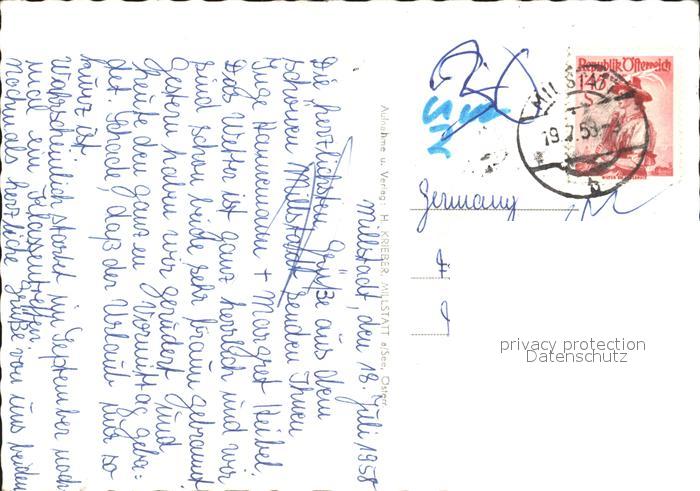 Millstadt, den 18. Juli 1958
Die herzlichsten Grüße aus dem
schönen Millstatt senden Ihnen
Inge Hannemann + Margret Heibel.
Das Wetter ist ganz herrlich und wir
sind schon beide sehr braun gebrannt.
Gestern haben wir gerudert und
heute den ganzen Vormittag geba-
det. Schade, daß der Urlaub nur so
kurz ist.
Wahrscheinlich startet im September noch
mal ein Klassentreffen.
Nochmals herzliche Grüße von uns beiden
Aufnahme u. Verlag: H. KRIEBER, MILLSTATT a/See, Österr.
Republik Österreich
1.45
S
19.7.58
b
Germany
privacy protection
Datenschutz